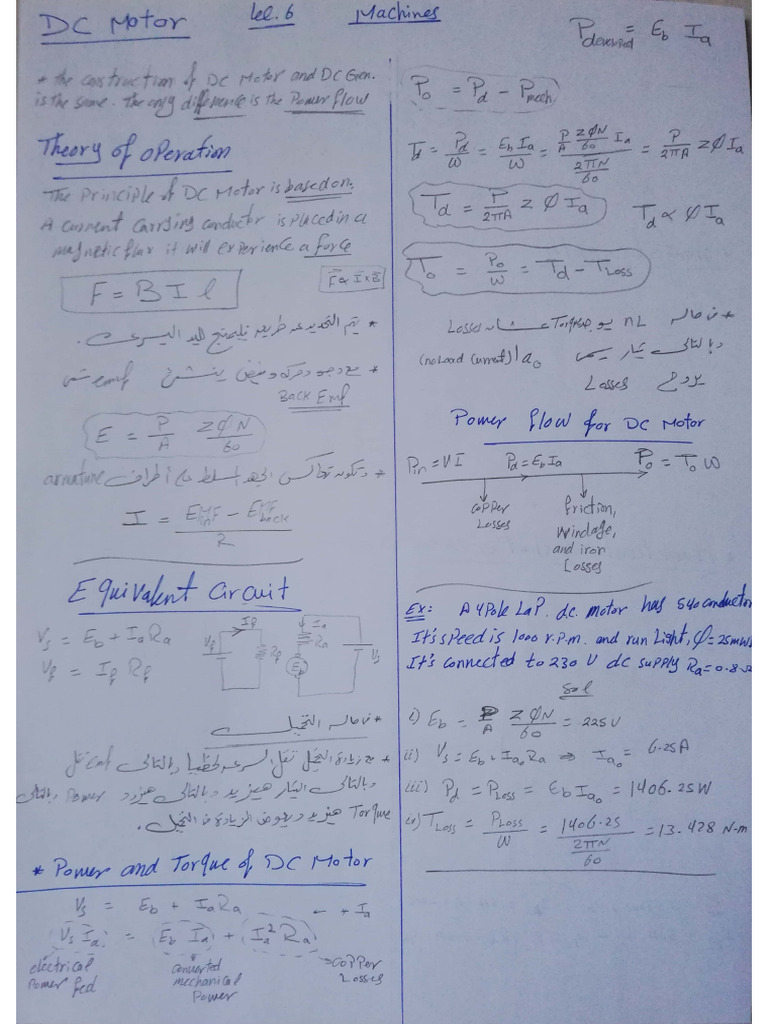 DC Motor
Lec. 6
Machines
* the construction of DC Motor and DC Gen.
is the same. The only difference is the Power flow
Theory of operation
The Principle of DC Motor is based on:
A current carrying conductor is placed in a
magnetic flux it will experience a force
F = B I l
F ∝ I × B
* يتم التحديد عن طريق فليمنج لليد اليسرى.
* مع وجود حركة وفيض ينشئ emf تسمى
Back Emf
E = P/A ZΦN/60
* وتكون تعاكس الجهد المسلط على أطراف armature
I = EMF in − EMF back / R
Equivalent Circuit
Vs = Eb + Ia Ra
Vf = If Rf
If
Vf
Rf
Ia
Ra
Eb
Vs
* في حالة التحميل
* مع زيادة الحمل تقل السرعة لحظيا وبالتالي emf تقل
وبالتالي التيار هيزيد وبالتالي هيزود Power وبالتالي
Torque هيزيد ويعوض الزيادة في الحمل.
* Power and Torque of DC Motor
Vs = Eb + Ia Ra ← * Ia
Vs Ia = Eb Ia + Ia² Ra
electrical Power fed
converted mechanical Power
= Copper Losses
P developed = Eb Ia
Po = Pd − Pmech
Td = Pd/W = Eb Ia/W = P/A ZΦN/60 Ia / 2πN/60 = P/2πA ZΦIa
Td = P/2πA Z Φ Ia
Td ∝ Φ Ia
To = Po/W = Td − TLoss
* في حالة nL يوجد Torque عشان Losses
وبالتالي تيار يسمى Iao (no Load current)
يروح Losses
Power flow for DC Motor
Pin = VI
Pd = Eb Ia
Po = To W
Copper Losses
Friction,
windage,
and iron
Losses
Ex: A 4 Pole Lap. d.c. motor has 540 conductor
It's speed is 1000 r.p.m. and run Light, Φ = 25mwb
It's connected to 230 V dc supply Ra = 0.8 Ω
Sol
i) Eb = P/A ZΦN/60 = 225 V
ii) Vs = Eb + Iao Ra ⇒ Iao = 6.25 A
iii) Pd = PLoss = Eb Iao = 1406.25 W
iv) TLoss = PLoss/W = 1406.25 / 2πN/60 = 13.428 N-m